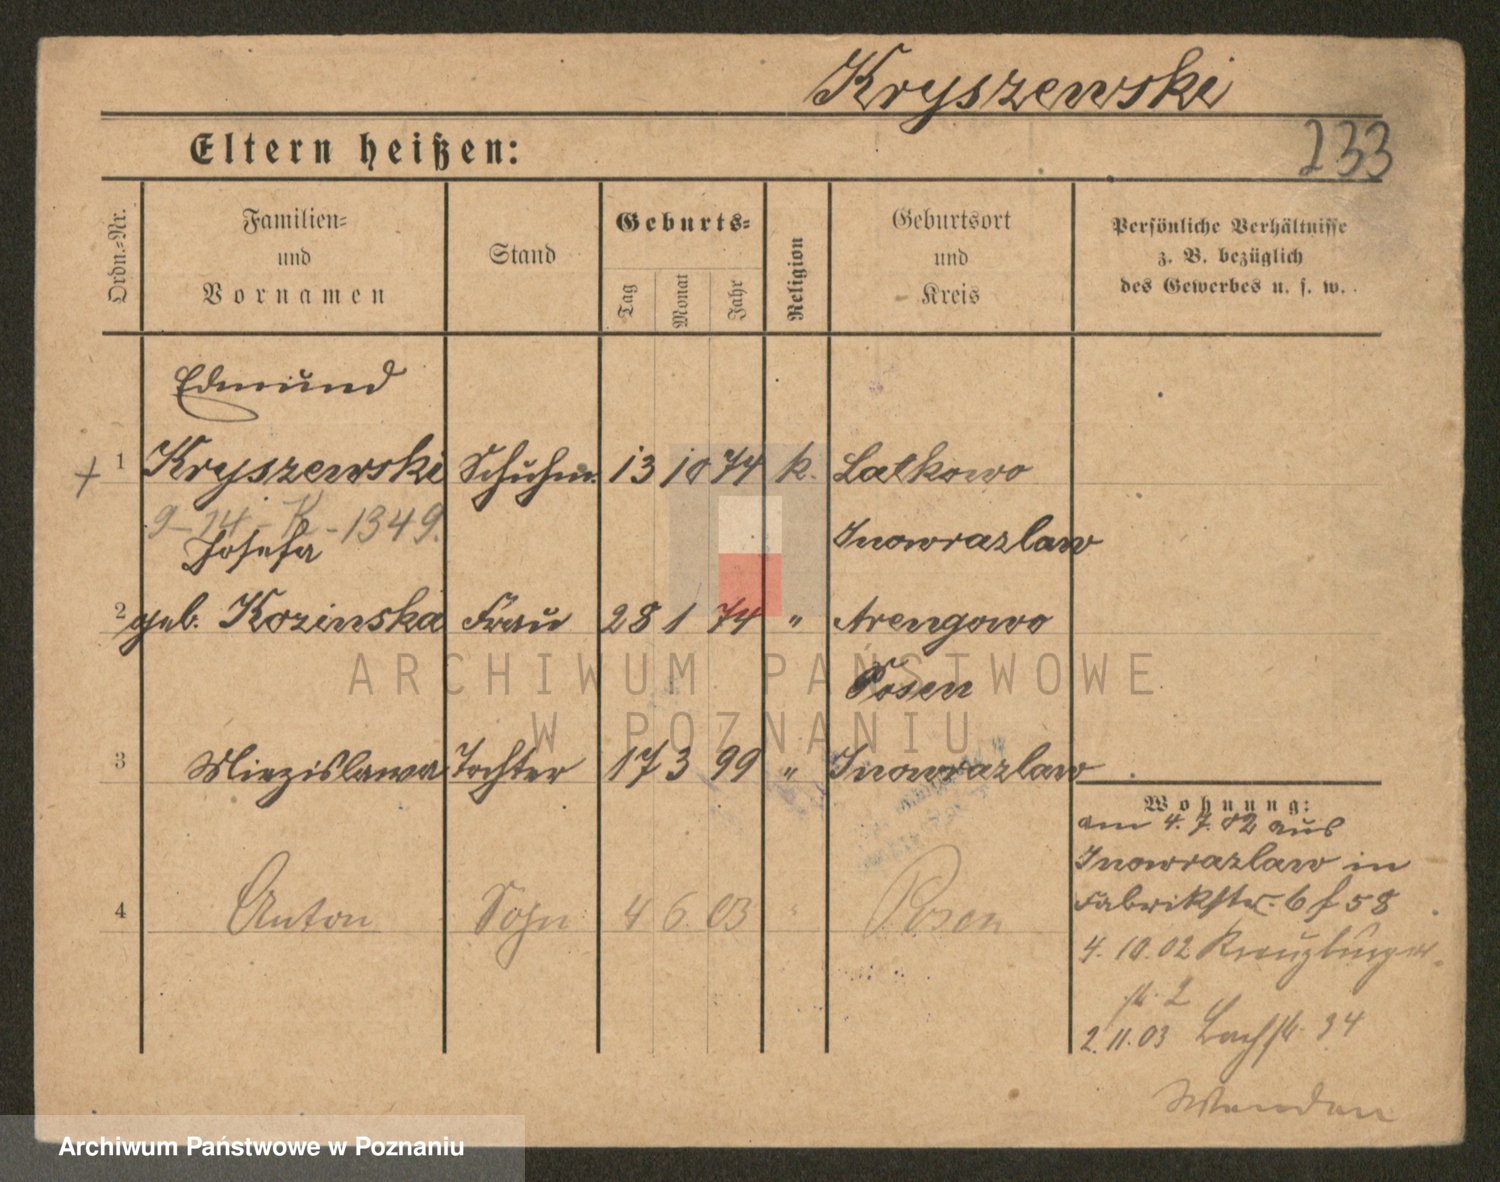 Kryszewski
233
Eltern heißen:
Ordn.-Nr.
Familien- und Vornamen
Stand
Geburts-
Tag
Monat
Jahr
Religion
Geburtsort und Kreis
Persönliche Verhältnisse
z. B. bezüglich
des Gewerbes u. s. w.
Edmund
+ 1 Kryszewski Schuhm. 13 10 74 k. Latkowo
9-14-K-1349. Inowrazlaw
Josefa
2 geb. Kozinska Frau 28 1 74 " Arengowo
Posen
3 Miezislawa Tochter 17 3 99 " Inowrazlaw
4 Anton Sohn 4 6. 03 " Posen
Wohnung:
am 4. 7. 02 aus
Inowrazlaw in
Fabrikstr. 6 f 58
4. 10. 02 Kreuzburger-
str. 2
2. 11. 03 Bachstr. 34
ARCHIWUM PAŃSTWOWE
W POZNANIU
Archiwum Państwowe w Poznaniu